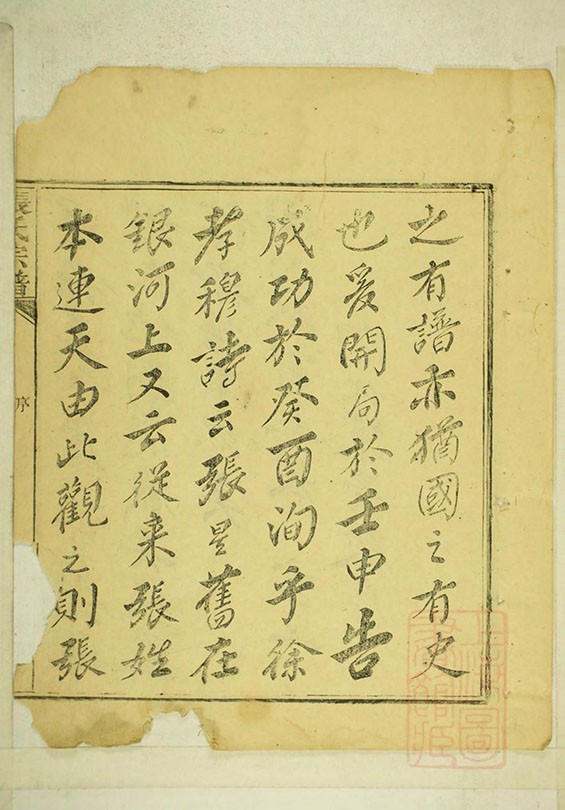 之有譜亦猶國之有史
也爰開局於壬申告
成功於癸酉洵乎徐
孝穆詩云張星舊在
銀河上又云從来張姓
本連天由此觀之則張
張氏宗譜
序